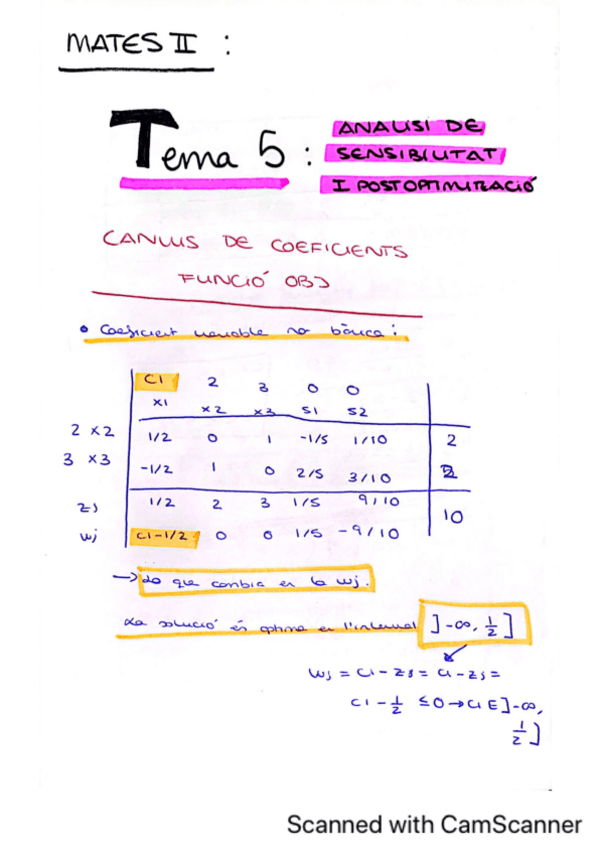 MATES II :
Tema 5 : ANALISI DE
SENSIBILITAT
I POSTOPTIMITZACIÓ
CANVIS DE COEFICIENTS
FUNCIÓ OBJ
• Coeficient variable no bàsica :
C1 2 3 0 0
x1 x2 x3 S1 S2
2 x2 1/2 0 1 -1/5 1/10 2
3 x3 -1/2 1 0 2/5 3/10 2
zj 1/2 2 3 1/5 9/10 10
wj C1-1/2 0 0 1/5 -9/10
→ Lo que cambia es la wj.
La solució és òptima en l'interval ]-∞, 1/2]
wj = C1 - zj = C1 - zj =
C1 - 1/2 ≤ 0 → C1 E ]-∞,
1/2]
Scanned with CamScanner